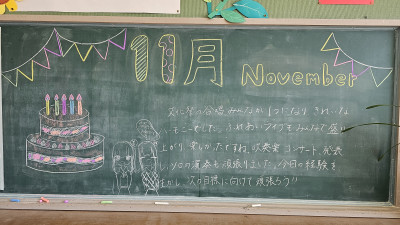 11月 November
みんなが1つになり きれいな
ハーモニーでした。 みんなで盛り
上がり 楽しかったですね。吹奏楽 コンサート、発表
ソロの演奏も頑張りました。今回の経験を
生かし 次の目標に向けて頑張ろう!!